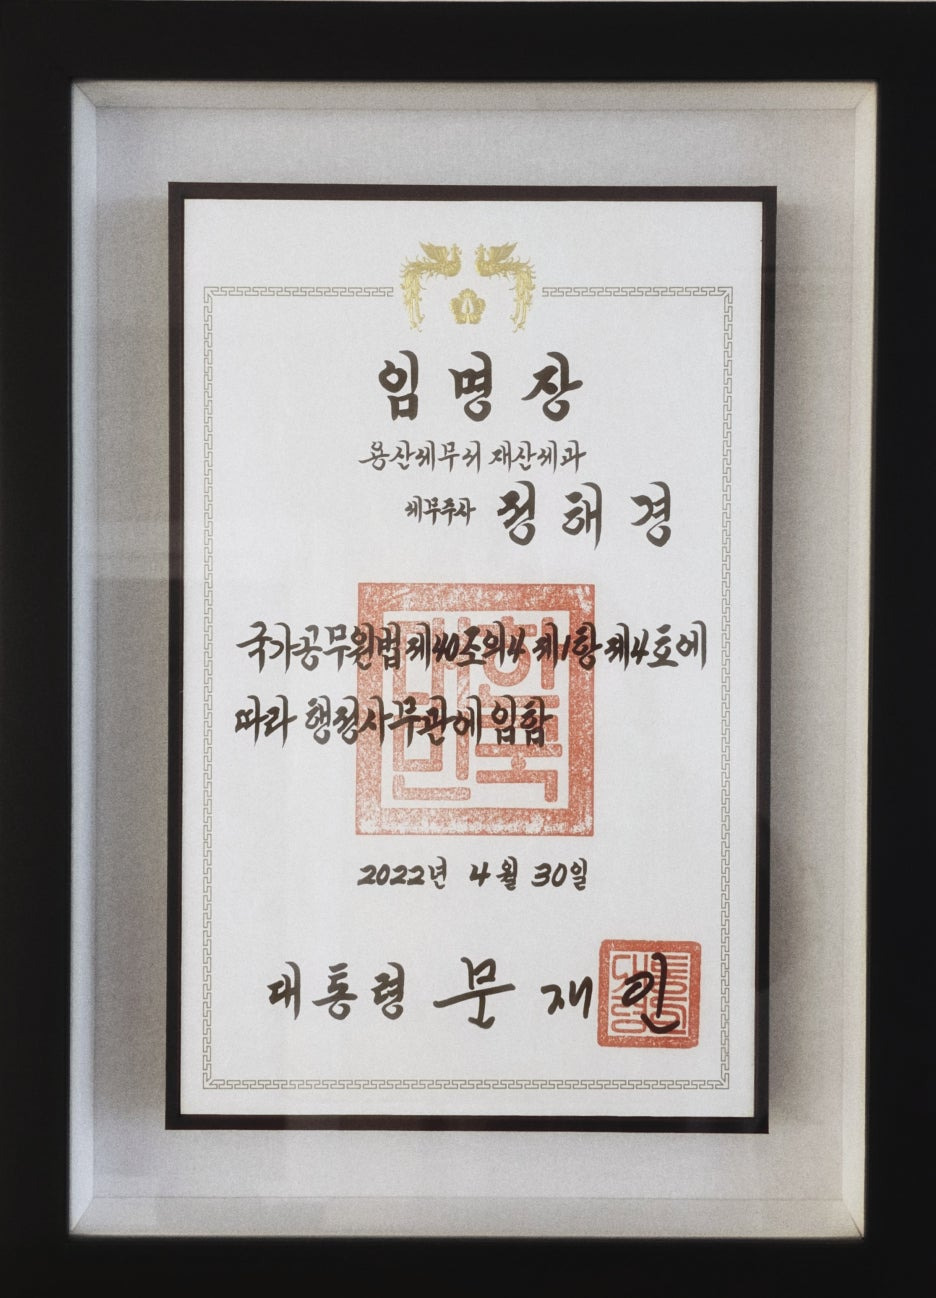 임명장
용산세무서 재산세과
세무주사 정해경
국가공무원법 제40조의4 제1항 제4호에
따라 행정사무관에 임함
대한민국
2022년 4월 30일
대통령 문재인